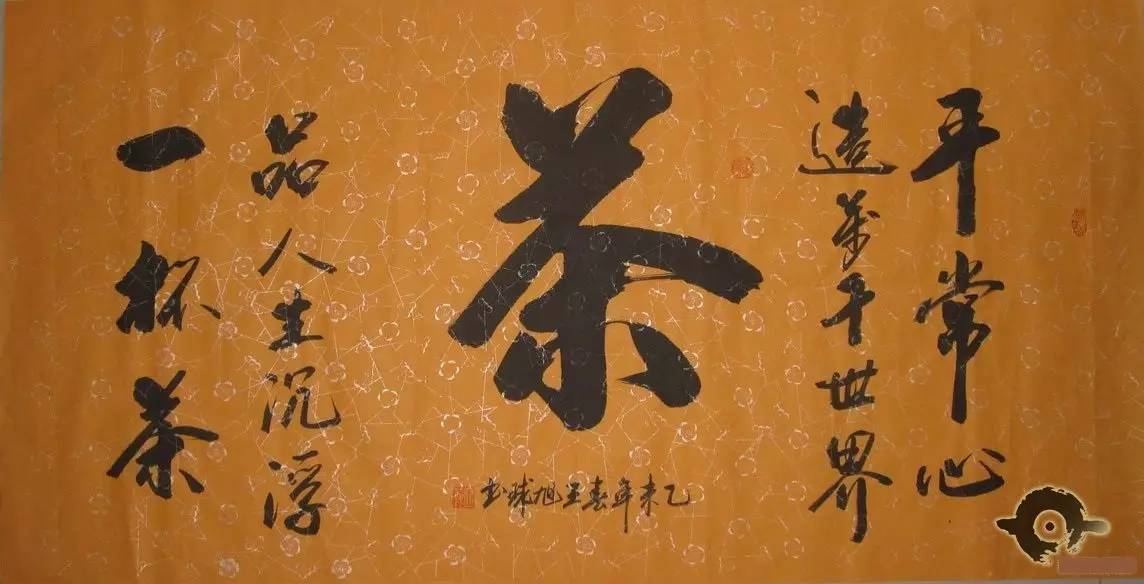 平常心
造萬千世界
茶
一杯茶
品人生沉浮
乙未年春王旭球书